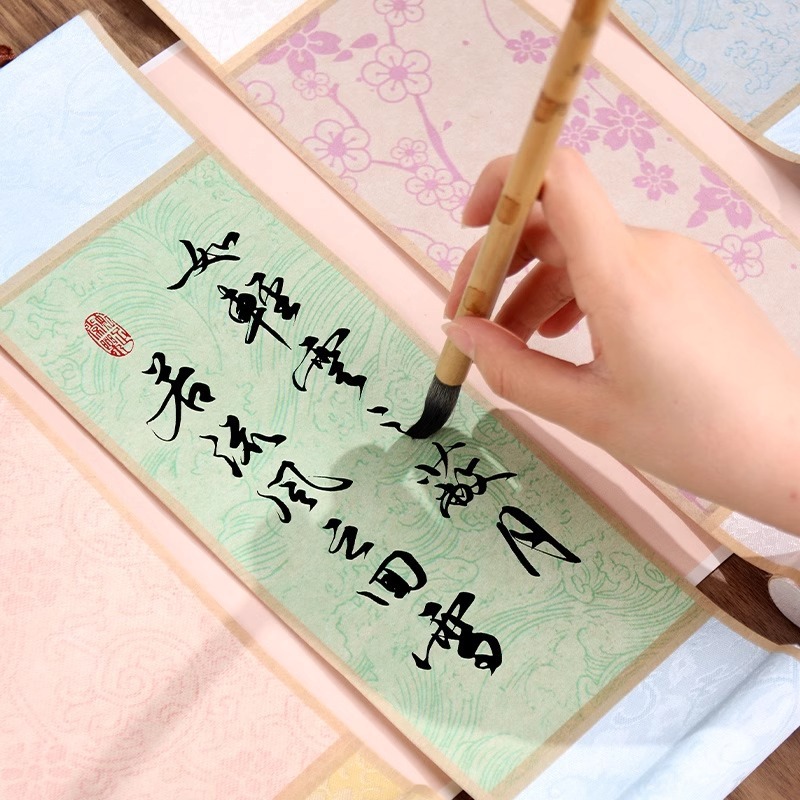 如輕雲之蔽月
若流風之回雪